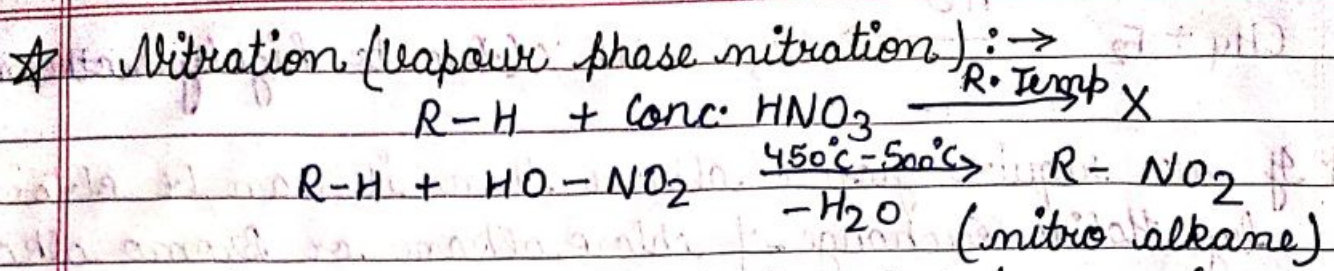 ☆ Nitration (vapour phase nitration) :→
R-H + Conc. HNO3 R. Temp → X
R-H + HO-NO2 450°C-500°C → -H2O R-NO2
(nitro alkane)